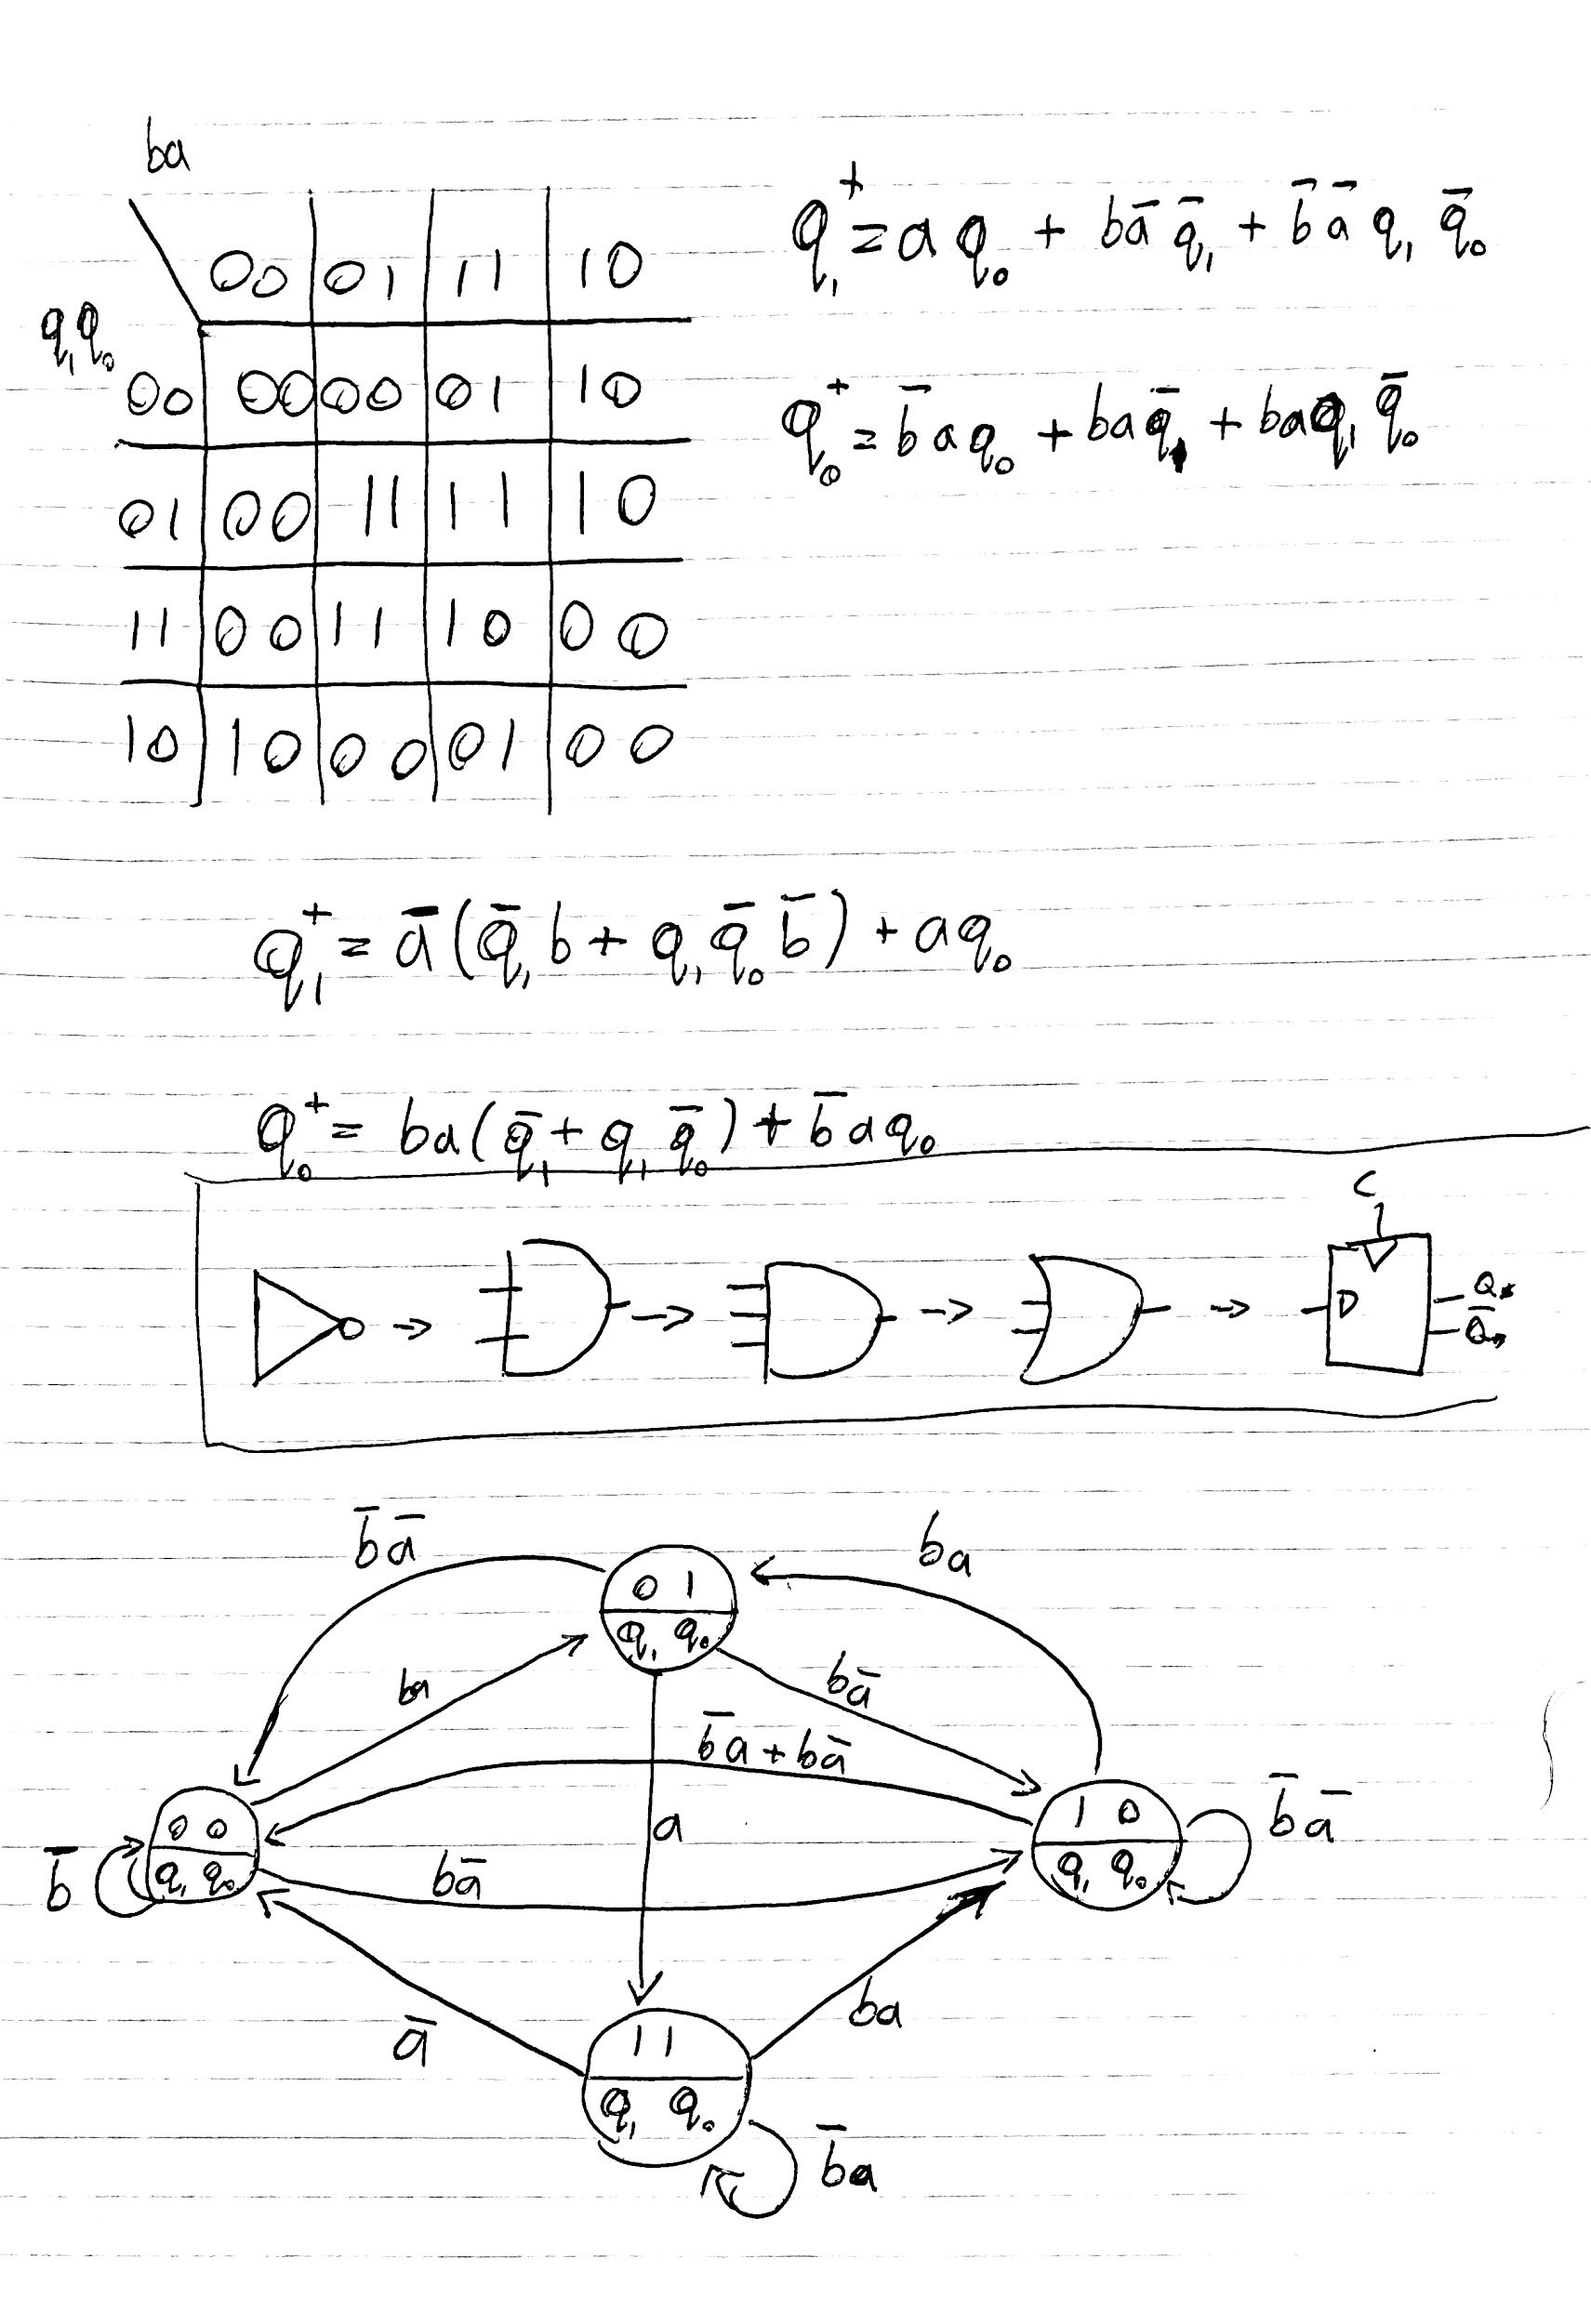 ba
00 01 11 10
q₁q₀
00 00 00 01 10
01 00 11 11 10
11 00 11 10 00
10 10 00 01 00
q₁⁺ = a q₀ + b a̅ q̅₁ + b̅ a̅ q₁ q̅₀
q₀⁺ = b̅ a q₀ + b a q̅₁ + b a q₁ q̅₀
q₁⁺ = a̅ (q̅₁ b + q₁ q̅₀ b̅) + a q₀
q₀⁺ = b a (q̅₁ + q₁ q̅₀) + b̅ a q₀
C
D
Q
Q̅
b̅ a̅
ba
0 1
q₁ q₀
ba
b a̅
b̅ a + b a̅
0 0
q₁ q₀
b̅
a
1 0
q₁ q₀
b̅ a̅
b a̅
a̅
ba
1 1
q₁ q₀
b̅ a